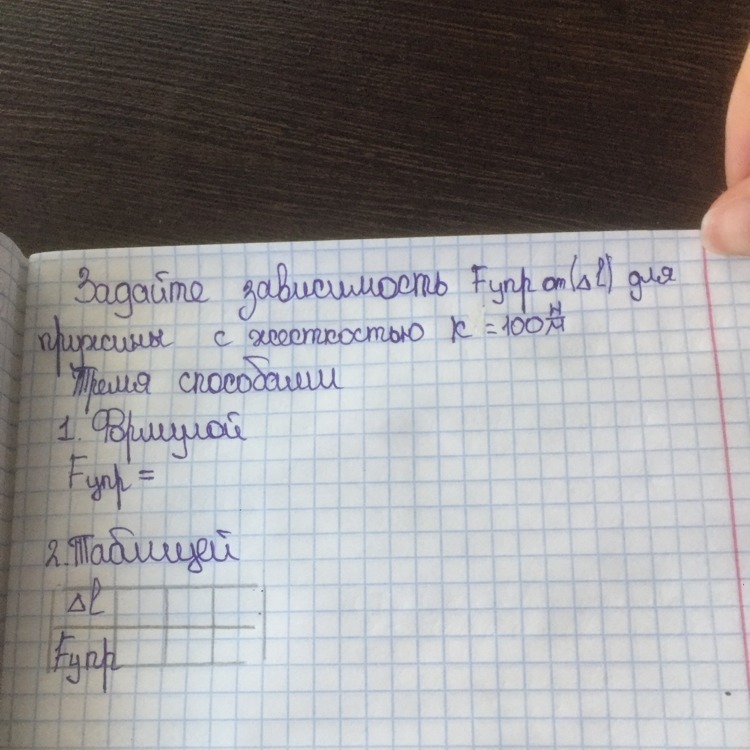 Задайте зависимость Fупр от (Δl) для
пружины с жесткостью k = 100 Н/м
Тремя способами
1. Формулой
Fупр =
2. Таблицей
Δl
Fупр